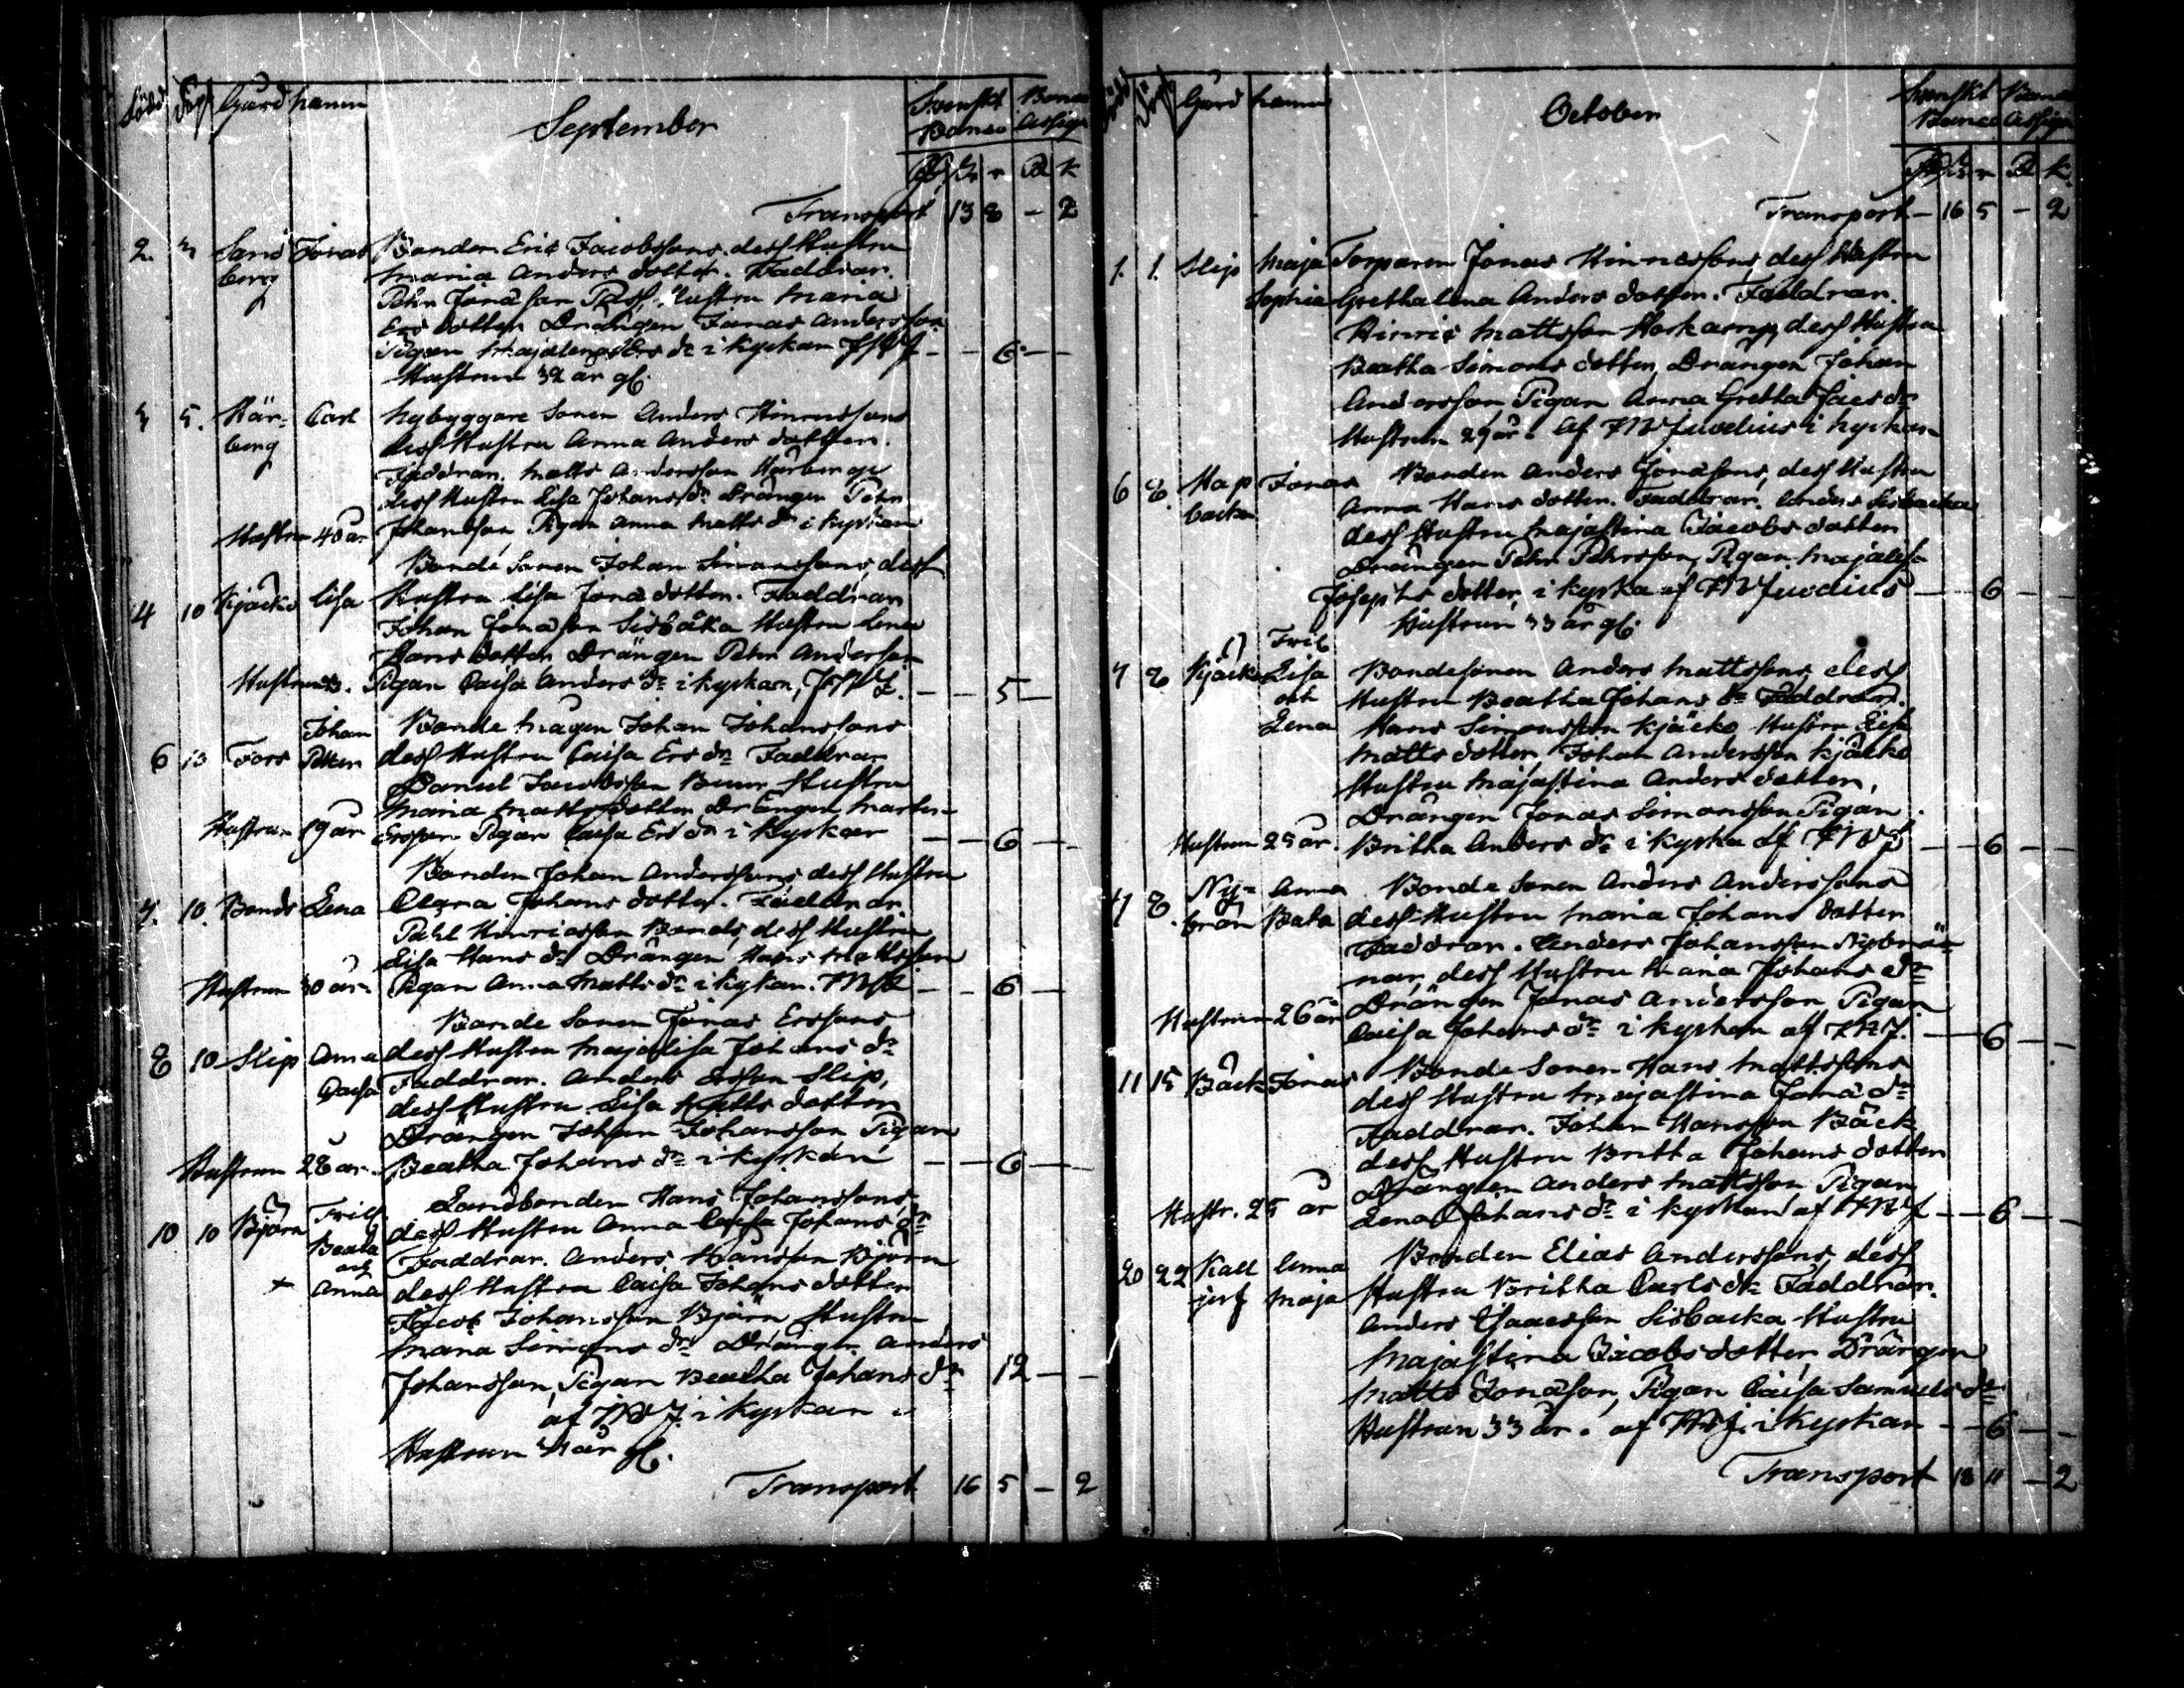 Född Döpt Gård Namn September Svenskt Banco Banco Assign
R k
Transport 13 8 - 2
2. 3 Sand Jonas Bonden Eric Jacobssons dess Hustru
berg Maria Anders dotter. Faddrar.
Pehr Jonasson Hustru Maria
Ers dotter Drängen Jonas Andersson
Pigan Majalena Ers dr i kyrkan - - 6 - -
Hustrun 32 år gl.
3 5. Här- Carl Nybyggare Sonen Anders Hinricssons
berg dess Hustru Anna Anders dotter.
Faddrar. Matts Andersson Härberg
dess Hustru Lisa Johans dr Drängen Pehr
Hustrun 40 år Johansson, Pigan Anna Matts dr i kyrkan
Bonde Sonen Johan Simonssons dess
4 10 Kjäcko Lisa Hustru Lisa Jonas dotter. Faddrar
Johan Jonasson Sisbacka Hustru Lena
Hans dotter Drängen Pehr Andersson
Hustrun Pigan Caisa Anders dr i kyrkan, - - 5 -
Johan Bonde Mågen Johan Johanssons
6 13 Fors Petter dess Hustru Caisa Ers dr Faddrar
Daniel Jacobsson Hustru
Maria Matts dotter Drängen Marten
Hustrun 19 år Ersson Pigan Caisa Ers dr i kyrkan - - 6 - -
Bonden Johan Anderssons dess Hustru
7. 10. Bonds Lena Clara Johans dotter. Faddrar.
Pehl Hinricsson Bonds, dess Hustru
Lisa Hans dr Drängen Hans Mattsson
Hustrun 30 år Pigan Anna Matts dr i kyrkan. - - 6 -
Bonde Sonen Jonas Erssons
8 10 Slip Anna dess Hustru Majalisa Johans dr
Caisa Faddrar. Anders Ersson Slip,
dess Hustru Lisa Matts dotter
Drängen Johan Johansson Pigan
Hustrun 28 år. Beatha Johans dr i kyrkan - - 6 - -
Tvill. Landbonden Hans Johanssons,
10 10 Björn Beata dess Hustru Anna Caisa Johans dr
och Faddrar. Anders Hansson Björn
+ Anna dess Hustru Caisa Johans dotter
Jacob Johansson Björn Hustru
Maria Simons dr Drängen Anders
Johansson, Pigan Beatha Johans dr 12 - -
af i kyrkan
Hustrun 31 år gl.
Transport 16 5 - 2
Född Döpt Gård Namn October Svenskt Banco Banco Assign
R k.
Transport - 16 5 - 2
1. 1. Slip Maja Torparen Jonas Hinricssons, dess Hustru
Sophia Grethalena Anders dotter. Faddrar.
Hinric Mattsson Storkamp, dess Hustru
Beatha Simons dotter, Drängen Johan
Andersson Pigan Anna Gretha Jacs dr
Hustrun 29 år. af Juvelius i kyrkan
6 8. Hap Jonas Bonden Anders Jonassons, dess Hustru
backa Anna Hans dotter. Faddrar. Anders Sisbacka
dess Hustru Majastina Jacobs dotter
Drängen Pehr Pehrsson, Pigan Majalisa
Josephs dotter, i kyrka af Juvelius - - 6 - -
Hustrun 33 år gl.
Tvill
7 8 Kjäcko Lisa Bondesonen Anders Mattssons, dess
och Hustru Beatha Johans dr Faddrar.
Lena Hans Simonsson Kjäcko Hustru Lisa
Matts dotter, Johan Andersson Kjäcko
Hustru Majastina Anders dotter,
Drängen Jonas Simonsson Pigan
Hustrun 25 år. Britha Anders dr i kyrka af - - 6 - -
7 8. Ny- Anna Bonde Sonen Anders Anderssons
brån Bata dess Hustru Maria Johans dotter
Faddrar. Anders Johansson Nybrå-
nar, dess Hustru Maria Johans dr
Drängen Jonas Andersson Pigan
Hustrun 26 år Caisa Johans dr i kyrkan af - - 6 - -
11 15 Bäck Jonas Bonde Sonen Hans Mattssons
dess Hustru Majastina Jonas dr
Faddrar. Johan Hansson Bäck
dess Hustru Britha Johans dotter
Drängen Anders Mattsson Pigan
Hustr. 25 år Lena Johans dr i kyrkan af - - 6 - -
20 22 Kall Anna Bonden Elias Anderssons, dess
jerf Maja Hustru Britha Carls dr Faddrar.
Anders Isaacsson Sisbacka Hustru
Majastina Jacobs dotter Drängen
Matts Jonasson, Pigan Caisa Samuels dr
Hustrun 33 år. af i kyrkan - - 6 - -
Transport 18 11 - 2